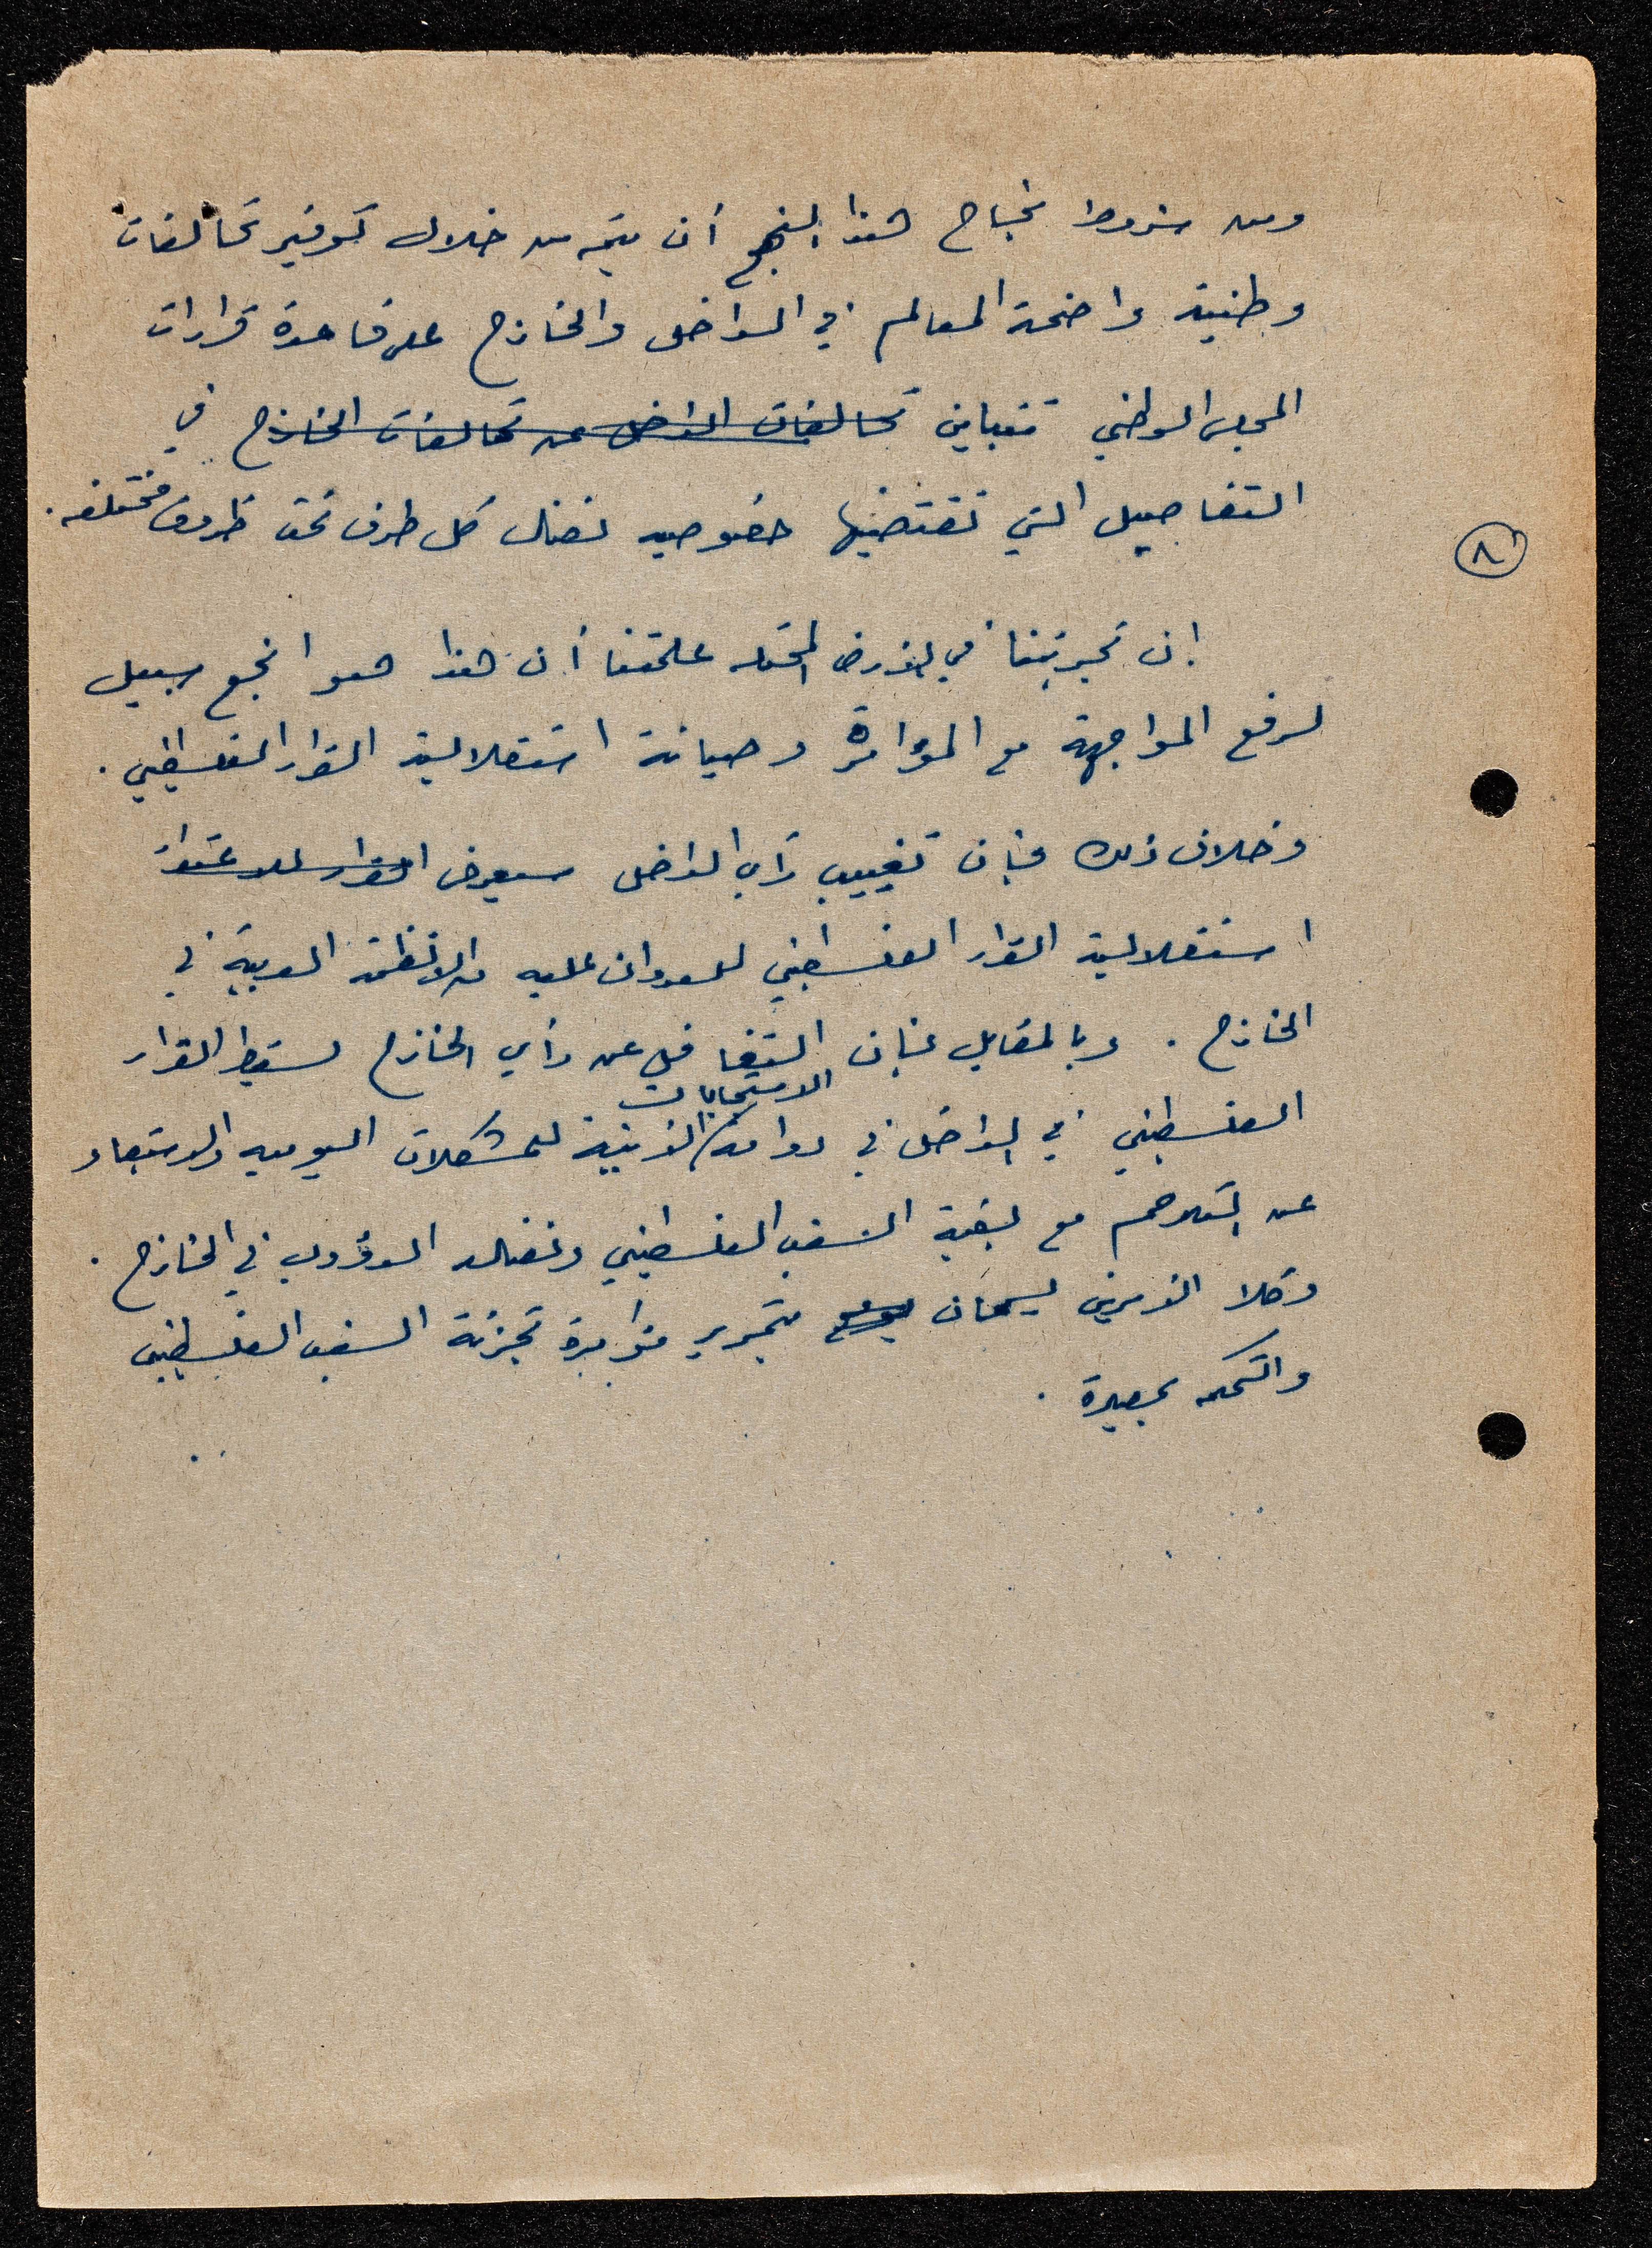 ومن شروط نجاح هذا النهج أن يتم من خلال توفير تحالفات
وطنية واضحة المعالم في الداخل والخارج على قاعدة قرارات
المجلس الوطني تتباين تحالفات الداخل عن تحالفات الخارج في
التفاصيل التي تقتضيها خصوصيه نضال كل طرف تحت ظروف مختلفه.
٨
إن تجربتنا في الارض المحتله علمتنا أن هذا هو انجع سبيل
لرفع المواجهة مع المؤامرة وصيانة استقلالية القرار الفلسطيني.
وخلاف ذلك فإن تغييب رأي الداخل سيعرض القرار
استقلالية القرار الفلسطيني للعدوان عليه من الانظمة العربية في
الخارج. وبالمقابل فإن التغافل عن رأي الخارج لسقوط القرار
الاستجابات
الفلسطيني في الداخل في دوامة الذرية للمشكلات اليوميه والابتعاد
عن التلاحم مع بقية الشعب الفلسطيني ونضاله الدؤوب في الخارج.
وكلا الامرين يسمحان بتمرير مؤامرة تجزئة الشعب الفلسطيني
والتحكم بمصيره.